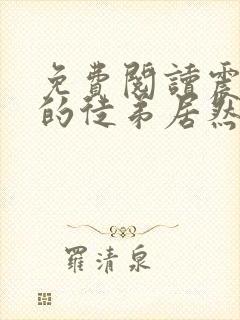 免費閱讀震
的徒弟居然
羅清泉